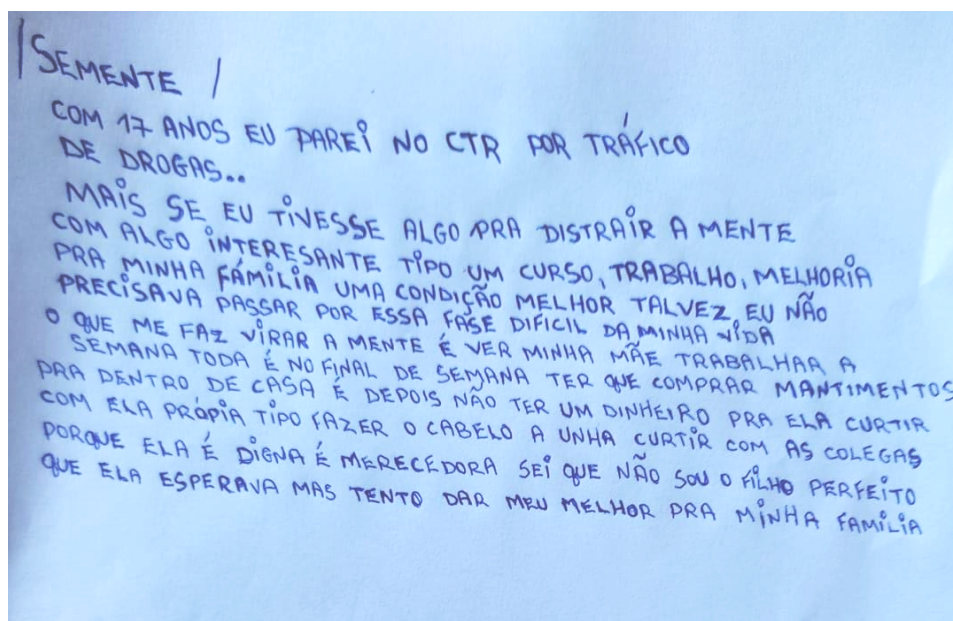 /SEMENTE/
COM 17 ANOS EU PAREI NO CTR POR TRÁFICO
DE DROGAS..
MAIS SE EU TIVESSE ALGO PRA DISTRAIR A MENTE
COM ALGO INTERESANTE TIPO UM CURSO, TRABALHO, MELHORIA
PRA MINHA FÁMILIA UMA CONDIÇÃO MELHOR TALVEZ EU NÃO
PRECISAVA PASSAR POR ESSA FASE DIFICIL DA MINHA VIDA
O QUE ME FAZ VIRAR A MENTE É VER MINHA MÃE TRABALHAR A
SEMANA TODA É NO FINAL DE SEMANA TER QUE COMPRAR MANTIMENTOS
PRA DENTRO DE CASA É DEPOIS NÃO TER UM DINHEIRO PRA ELA CURTIR
COM ELA PRÓPIA TIPO FAZER O CABELO A UNHA CURTIR COM AS COLEGAS
PORQUE ELA É DIGNA É MERECEDORA SEI QUE NÃO SOU O FILHO PERFEITO
QUE ELA ESPERAVA MAS TENTO DAR MEU MELHOR PRA MINHA FAMILIA